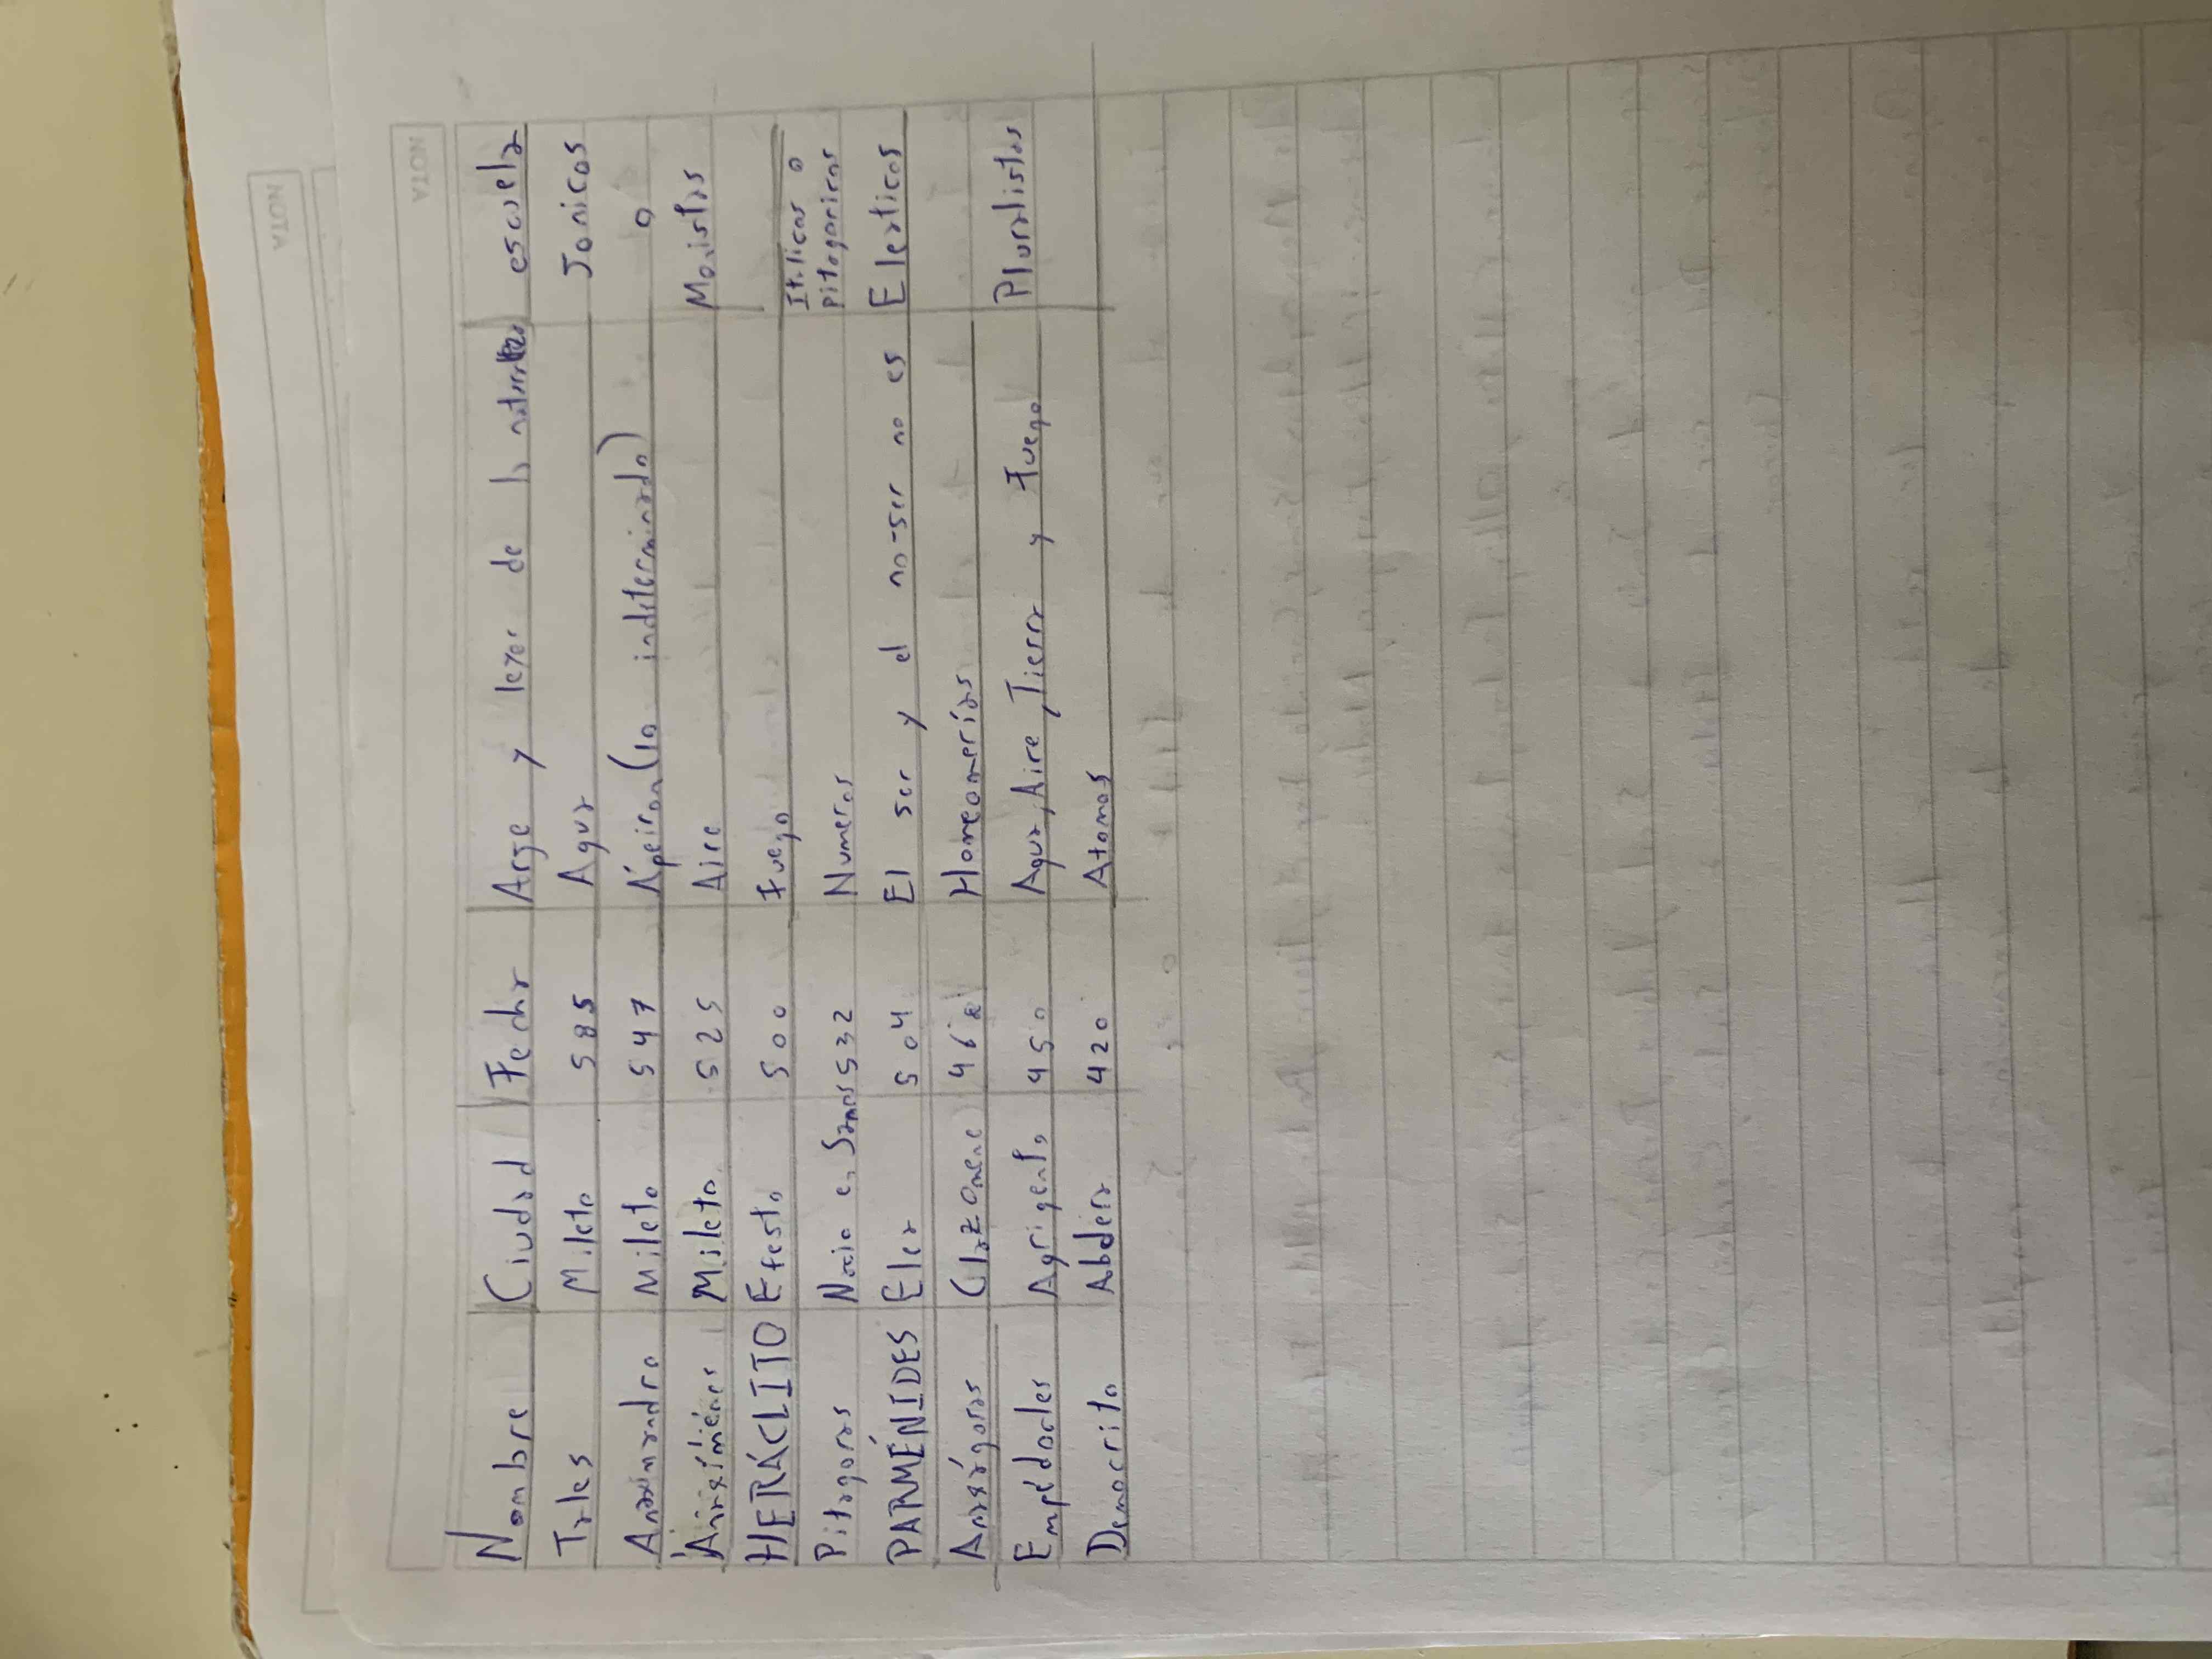 NOTA
NOTA
Nombre Ciudad Fecha Arje y leyes de la escuela
Tales Mileto 585 Agua Jonicos
Anaximandro Mileto 547 Ápeiron (lo indeterminado) o
Anaxímenes Mileto 525 Aire Monistas
HERÁCLITO Efesto 500 Fuego
Pitagoras Nacio en Samos 532 Numeros Italicos o pitagoricos
PARMÉNIDES Elea 504 El ser y el no-ser no es Eleaticos
Anaxágoras Clazomene 46 Homeomerías
Empédocles Agrigento 450 Agua, Aire, Tierra y Fuego Pluralistas
Democrito Abdera 420 Atomos